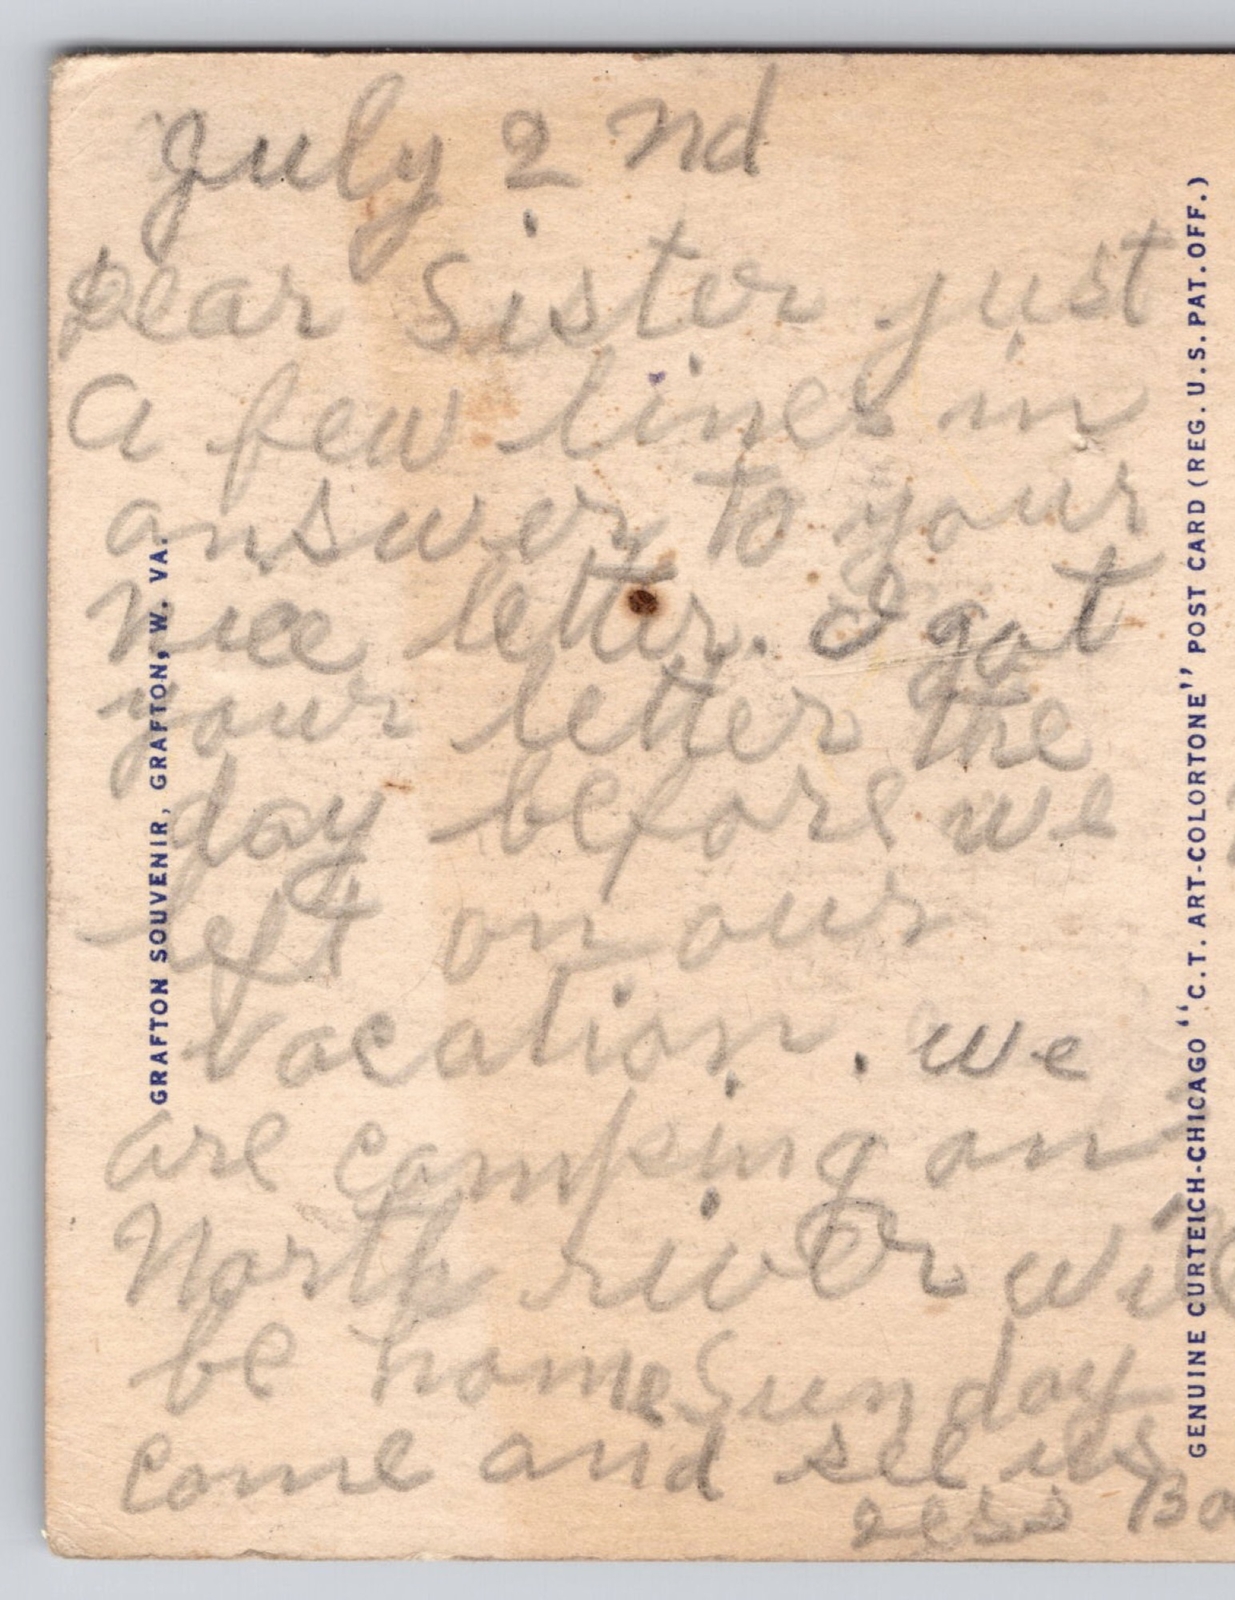 July 2nd
Dear Sister just
a few lines in
answer to your
nice letter. I got
your letter the
day before we
left on our
vacation. we
are camping on
North river will
be home Sunday
come and see us
GRAFTON SOUVENIR, GRAFTON, W. VA.
GENUINE CURTEICH-CHICAGO "C.T. ART-COLORTONE" POST CARD (REG. U.S. PAT. OFF.)